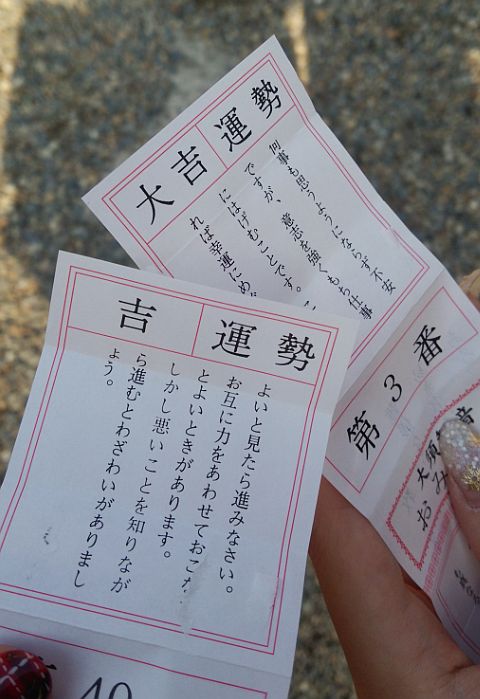 大吉 運勢
何事も思うようにならず不安
ですが、意志を強くもち仕事
にはげむことです。こ
れば幸運にめ
第3番
大須観音
おみ
吉 運勢
よいと見たら進みなさい。
お互に力をあわせておこな
とよいときがあります。
しかし悪いことを知りなが
ら進むとわざわいがありまし
ょう。
40